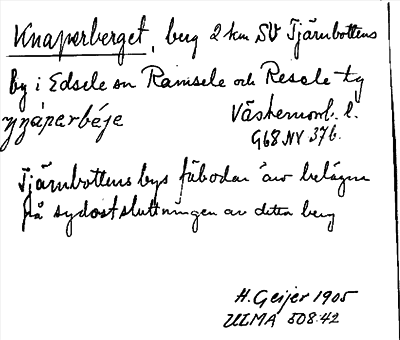 Knaperberget, berg 2 km SV Tjärnbottens
by i Edsele sn Ramsele och Resele tg
Västernorrl. l.
G68 NV 37b.
Tjärnbottens bys fäbodar äro belägna
på sydostsluttningen av detta berg
H. Geijer 1905
ULMA 508:42